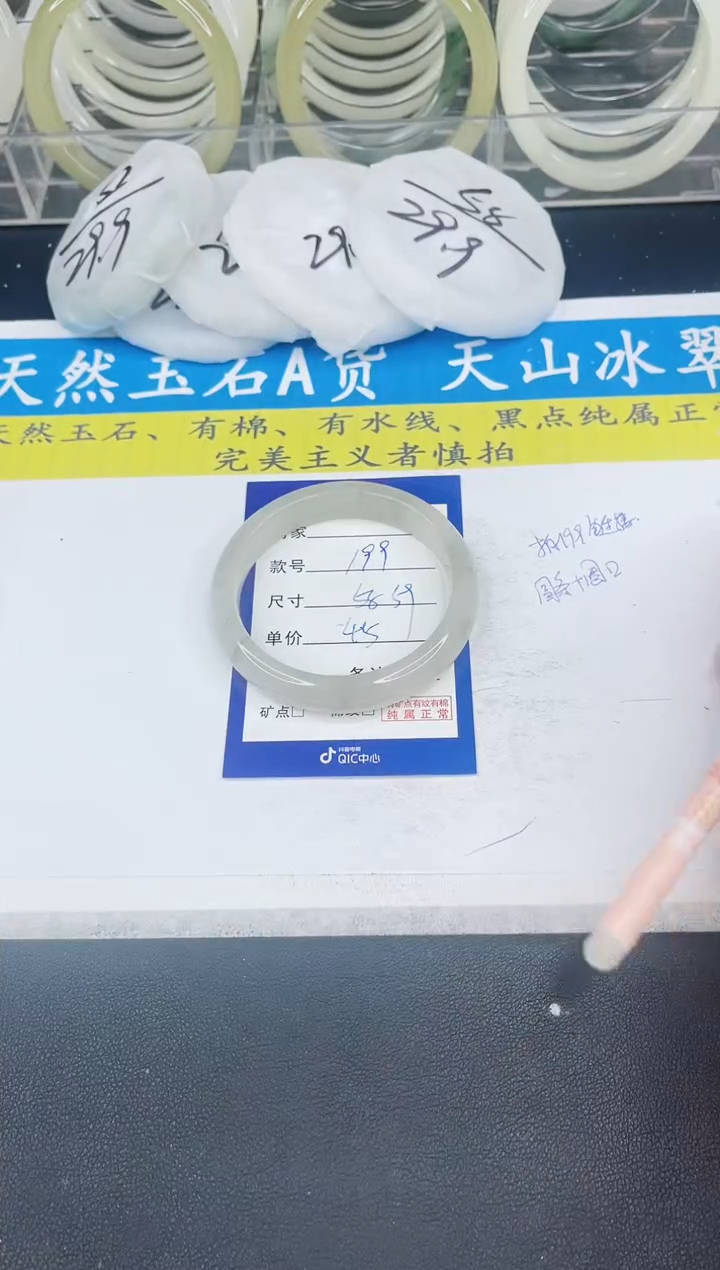 52
29.9
29.
58
29.9
天然玉石A货 天山冰翠
天然玉石、有棉、有水线、黑点纯属正常
完美主义者慎拍
家
款号 199
尺寸 58 59
单价 45
矿点□
有矿点有纹有棉
纯属正常
抖音电商
QIC中心